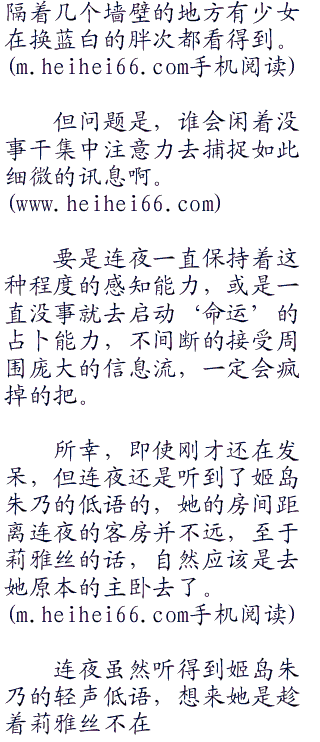 隔着几个墙壁的地方有少女
在换蓝白的胖次都看得到。
(m.heihei66.com手机阅读)
但问题是，谁会闲着没
事干集中注意力去捕捉如此
细微的讯息啊。
(www.heihei66.com)
要是连夜一直保持着这
种程度的感知能力，或是一
直没事就去启动‘命运’的
占卜能力，不间断的接受周
围庞大的信息流，一定会疯
掉的把。
所幸，即使刚才还在发
呆，但连夜还是听到了姬岛
朱乃的低语的，她的房间距
离连夜的客房并不远，至于
莉雅丝的话，自然应该是去
她原本的主卧去了。
(m.heihei66.com手机阅读)
连夜虽然听得到姬岛朱
乃的轻声低语，想来她是趁
着莉雅丝不在